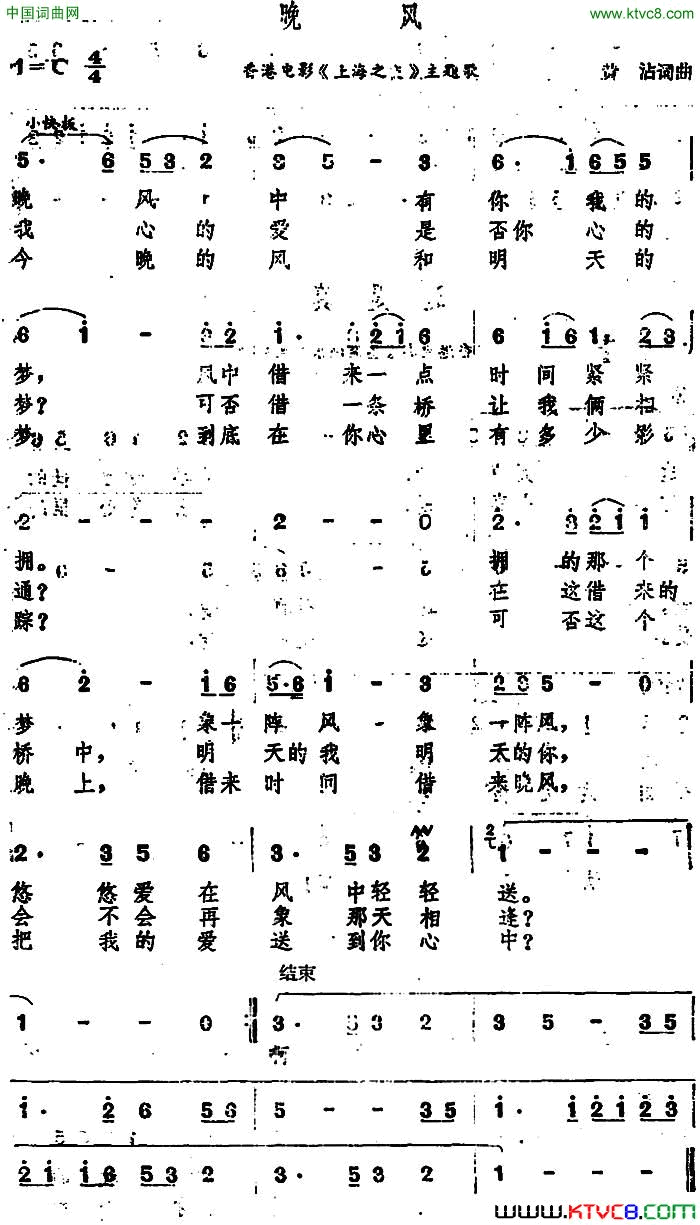 中国词曲网
www.ktvc8.com
晚 风
1=C 4/4
香港电影《上海之》主题歌
沾词曲
小快板
5· 6 5 3 2 3 5 - 3 6· 1 6 5 5
晚 风 中 有 你 我 的
我 心 的 爱 是 否 你 心 的
今 晚 的 风 和 明 天 的
6 1 - 3 2 1· 6 2 1 6 6 1 6 1, 2 3
梦, 风 中 借 来 一 点 时 间 紧 紧
梦? 可 否 借 一 条 桥 让 我 俩 相
梦 到 底 在 你 心 里 有 多 少 影
2 - - - 2 - - 0 2· 3 2 1 1
拥。 拥 的 那 个
通? 在 这 借 来 的
踪? 可 否 这 个
6 2 - 1 6 5· 6 1 - 3 2 3 5 - 0
梦 象 一 阵 风 象 一 阵 风,
桥 中, 明 天 的 我 明 天 的 你,
晚 上, 借 来 时 间 借 来 晚 风,
2· 3 5 6 3· 5 3 2 1 - - -
悠 悠 爱 在 风 中 轻 轻 送。
会 不 会 再 象 那 天 相 逢?
把 我 的 爱 送 到 你 心 中?
结束
1 - - 0 3· 5 3 2 3 5 - 3 5
啊
1· 2 6 5 6 5 - - 3 5 1· 1 2 1 2 3
2 1 1 6 5 3 2 3· 5 3 2 1 - - -
www.KTVC8.com